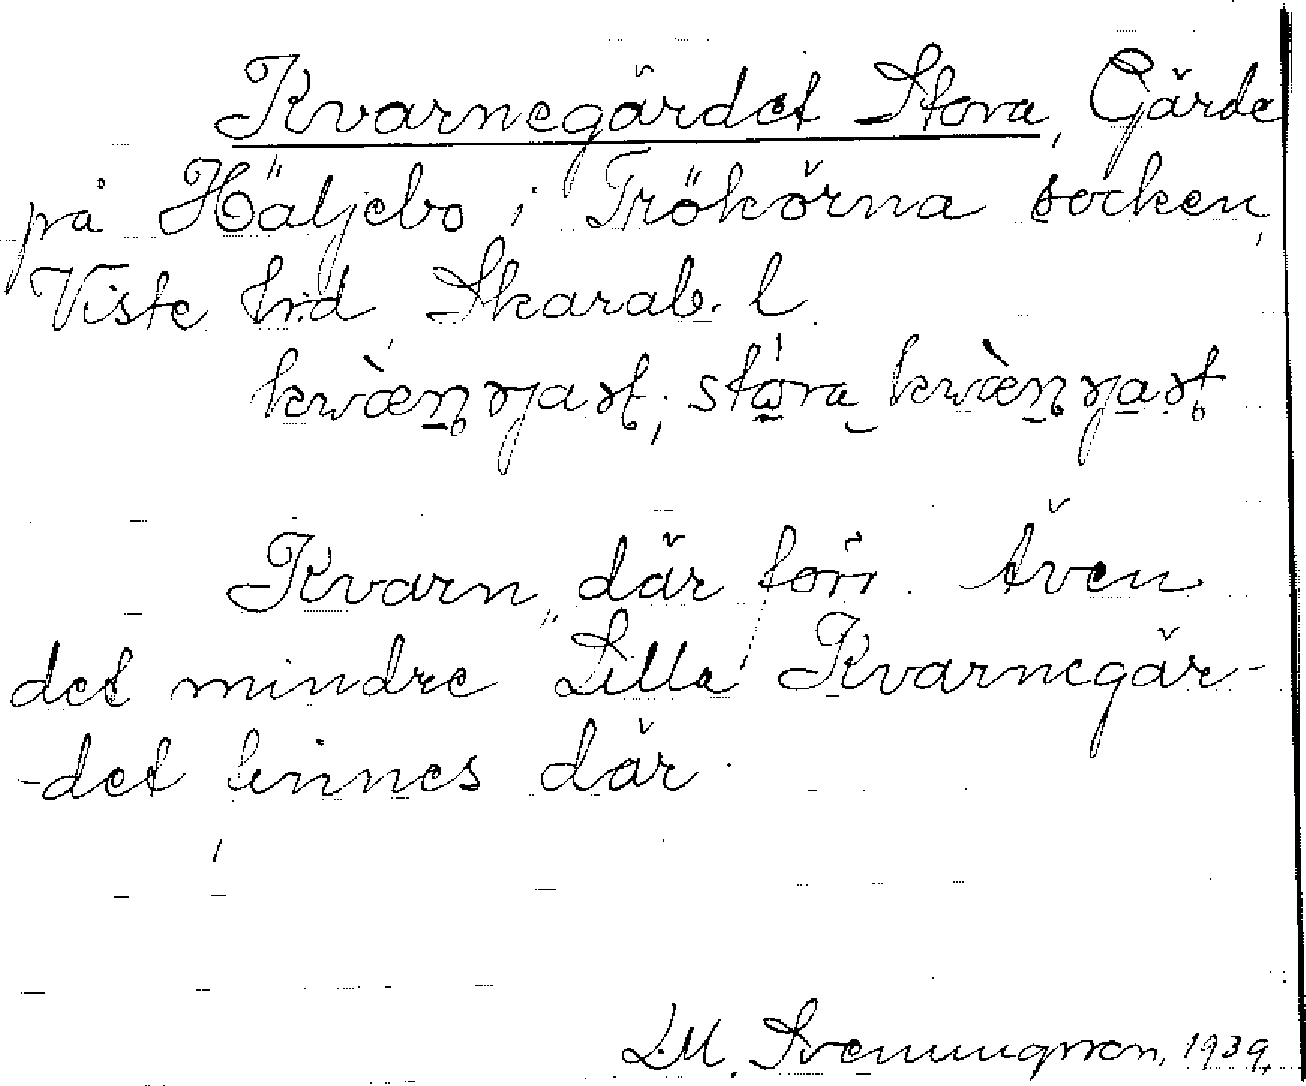 Kvarnegärdet Stora, Gärde
på Häljebo i Trökörna socken,
Viste hrd Skarab. l.
kwæ̀ṇrjaṣt, stóra kwæ̀ṇrjaṣt
Kvarn där förr. Även
det mindre "Lilla" Kvarnegär-
-det finnes där.
D.M. Svenungsson, 1939.